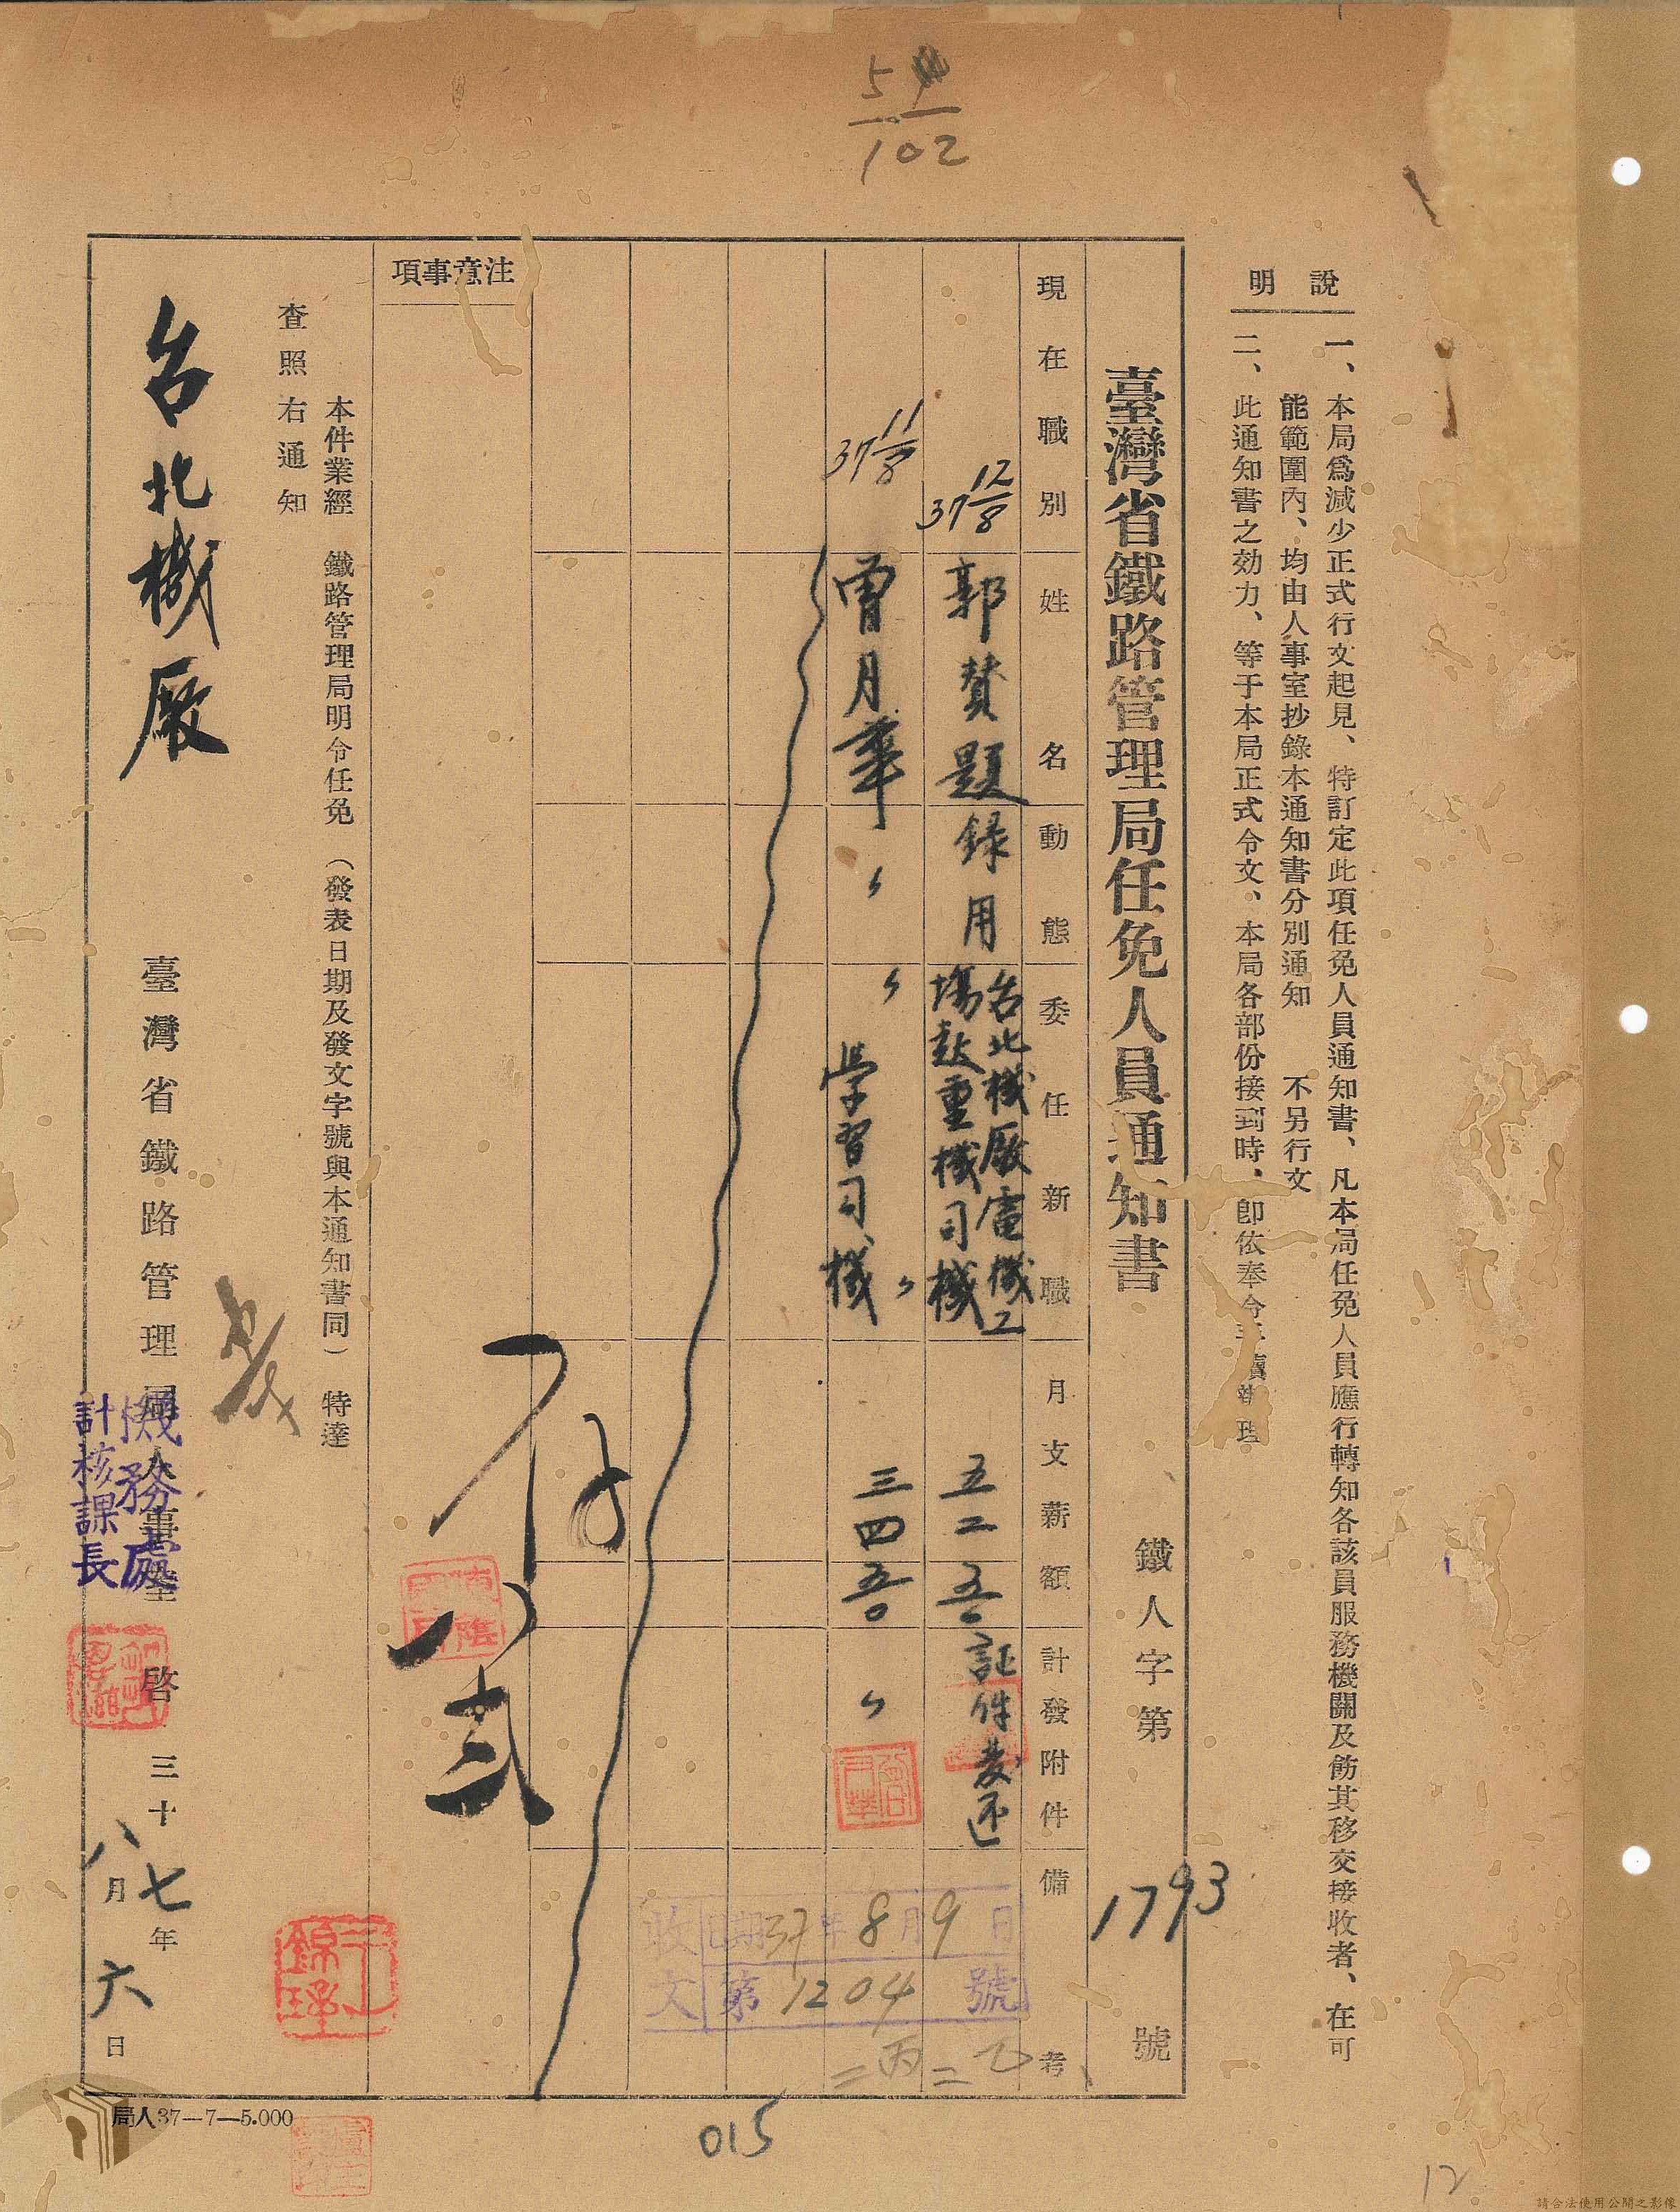 5
102
說明
一、本局爲減少正式行文起見、特訂定此項任免人員通知書、凡本局任免人員應行轉知各該員服務機關及飭其移交接收者、在可
能範圍內、均由人事室抄錄本通知書分別通知 不另行文
二、此通知書之効力、等于本局正式令文、本局各部份接到時、卽依奉令手續辦理
臺灣省鐵路管理局任免人員通知書 鐵人字第 1793 號
現在職別 姓名 動態 委任新職 月支薪額 計發附件 備考
37 12/8 郭賛題 録用 台北機厰電機工
場起重機司機 五二五〇 証件發还 乙二
37 11/8 曾月華 〃 〃 學習司機 〃 三四五〇 〃 丙二
收文
日期 37年8月9日
第1204號
注意事項
存
本件業經 鐵路管理局明令任免 （發表日期及發文字號與本通知書同） 特達
查照右通知
台北機厰
臺灣省鐵路管理局人事室 啓 三十七年
八月六日
機務處
計核課長
局人37—7—5.000
015
12
請合法使用公開之影像